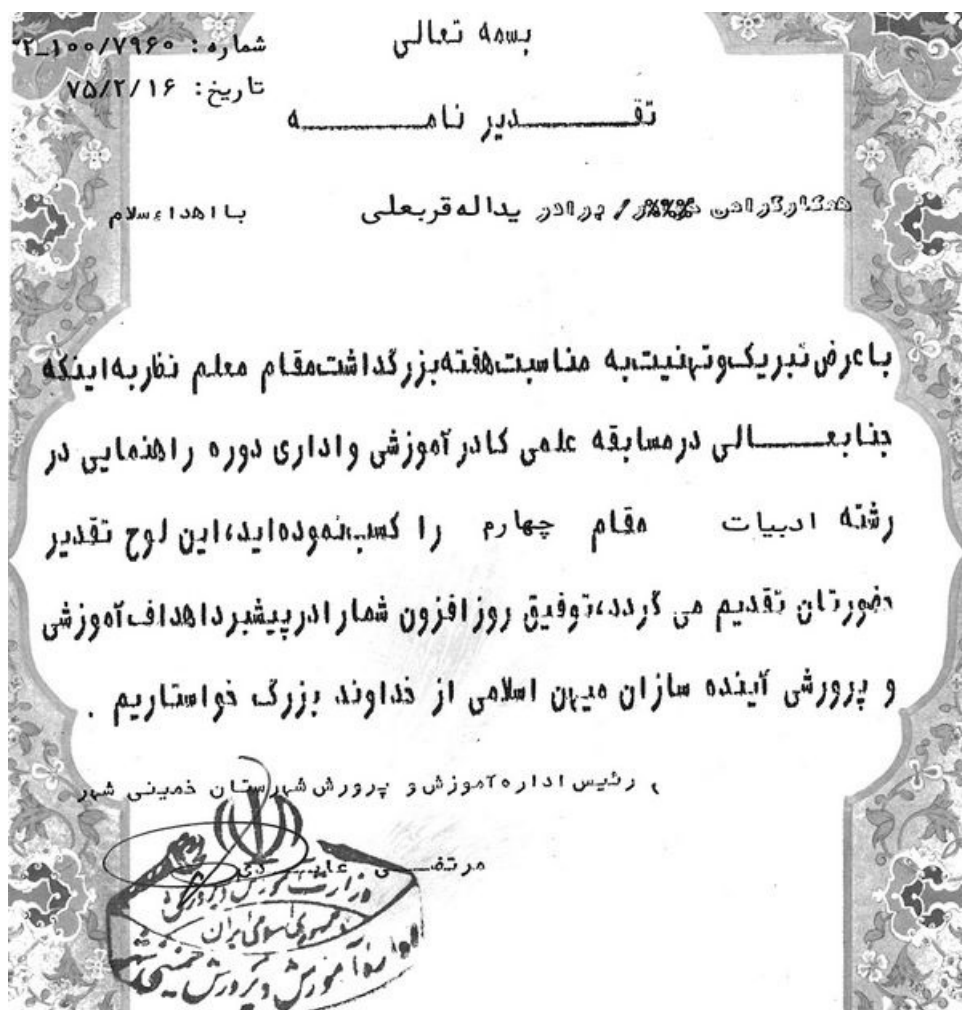 بسمه تعالی
شماره: ۷۹۶۰/۱۰۰_۲
تاریخ: ۷۵/۲/۱۶
تقدیر نامه
همکارگرامی / برادر یداله قربعلی با اهداء سلام
با عرض تبریک و تهنیت به مناسبت هفته بزرگداشت مقام معلم نظر به اینکه
جنابعالی در مسابقه علمی کادر آموزشی و اداری دوره راهنمایی در
رشته ادبیات مقام چهارم را کسب نموده اید، این لوح تقدیر
حضورتان تقدیم می گردد، توفیق روز افزون شما را در پیشبرد اهداف آموزشی
و پرورشی آینده سازان میهن اسلامی از خداوند بزرگ خواستاریم .
رئیس اداره آموزش و پرورش شهرستان خمینی شهر
وزارت آموزش و پرورش
جمهوری اسلامی ایران
اداره آموزش و پرورش خمینی شهر